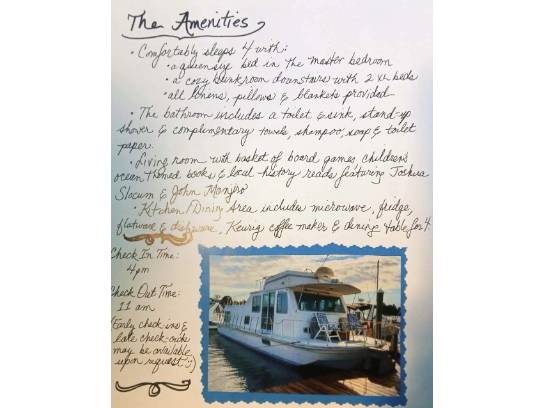 The Amenities
• Comfortably sleeps 4 with:
• a queensize bed in the master bedroom
• a cozy bunkroom downstairs with 2 XL beds
• all linens, pillows & blankets provided
• The bathroom includes a toilet & sink, stand-up
shower & complimentary towels, shampoo, soap & toilet
paper.
• Living room with basket of board games, children's
ocean themed books & local history reads featuring Joshua
Slocum & John Manjiro
• Kitchen/Dining Area includes microwave, fridge,
flatware & dishware, Keurig coffee maker & dining table for 4.
Check In Time:
4pm
Check Out Time:
11 am
(Early check ins &
late check outs
may be available
upon request :)